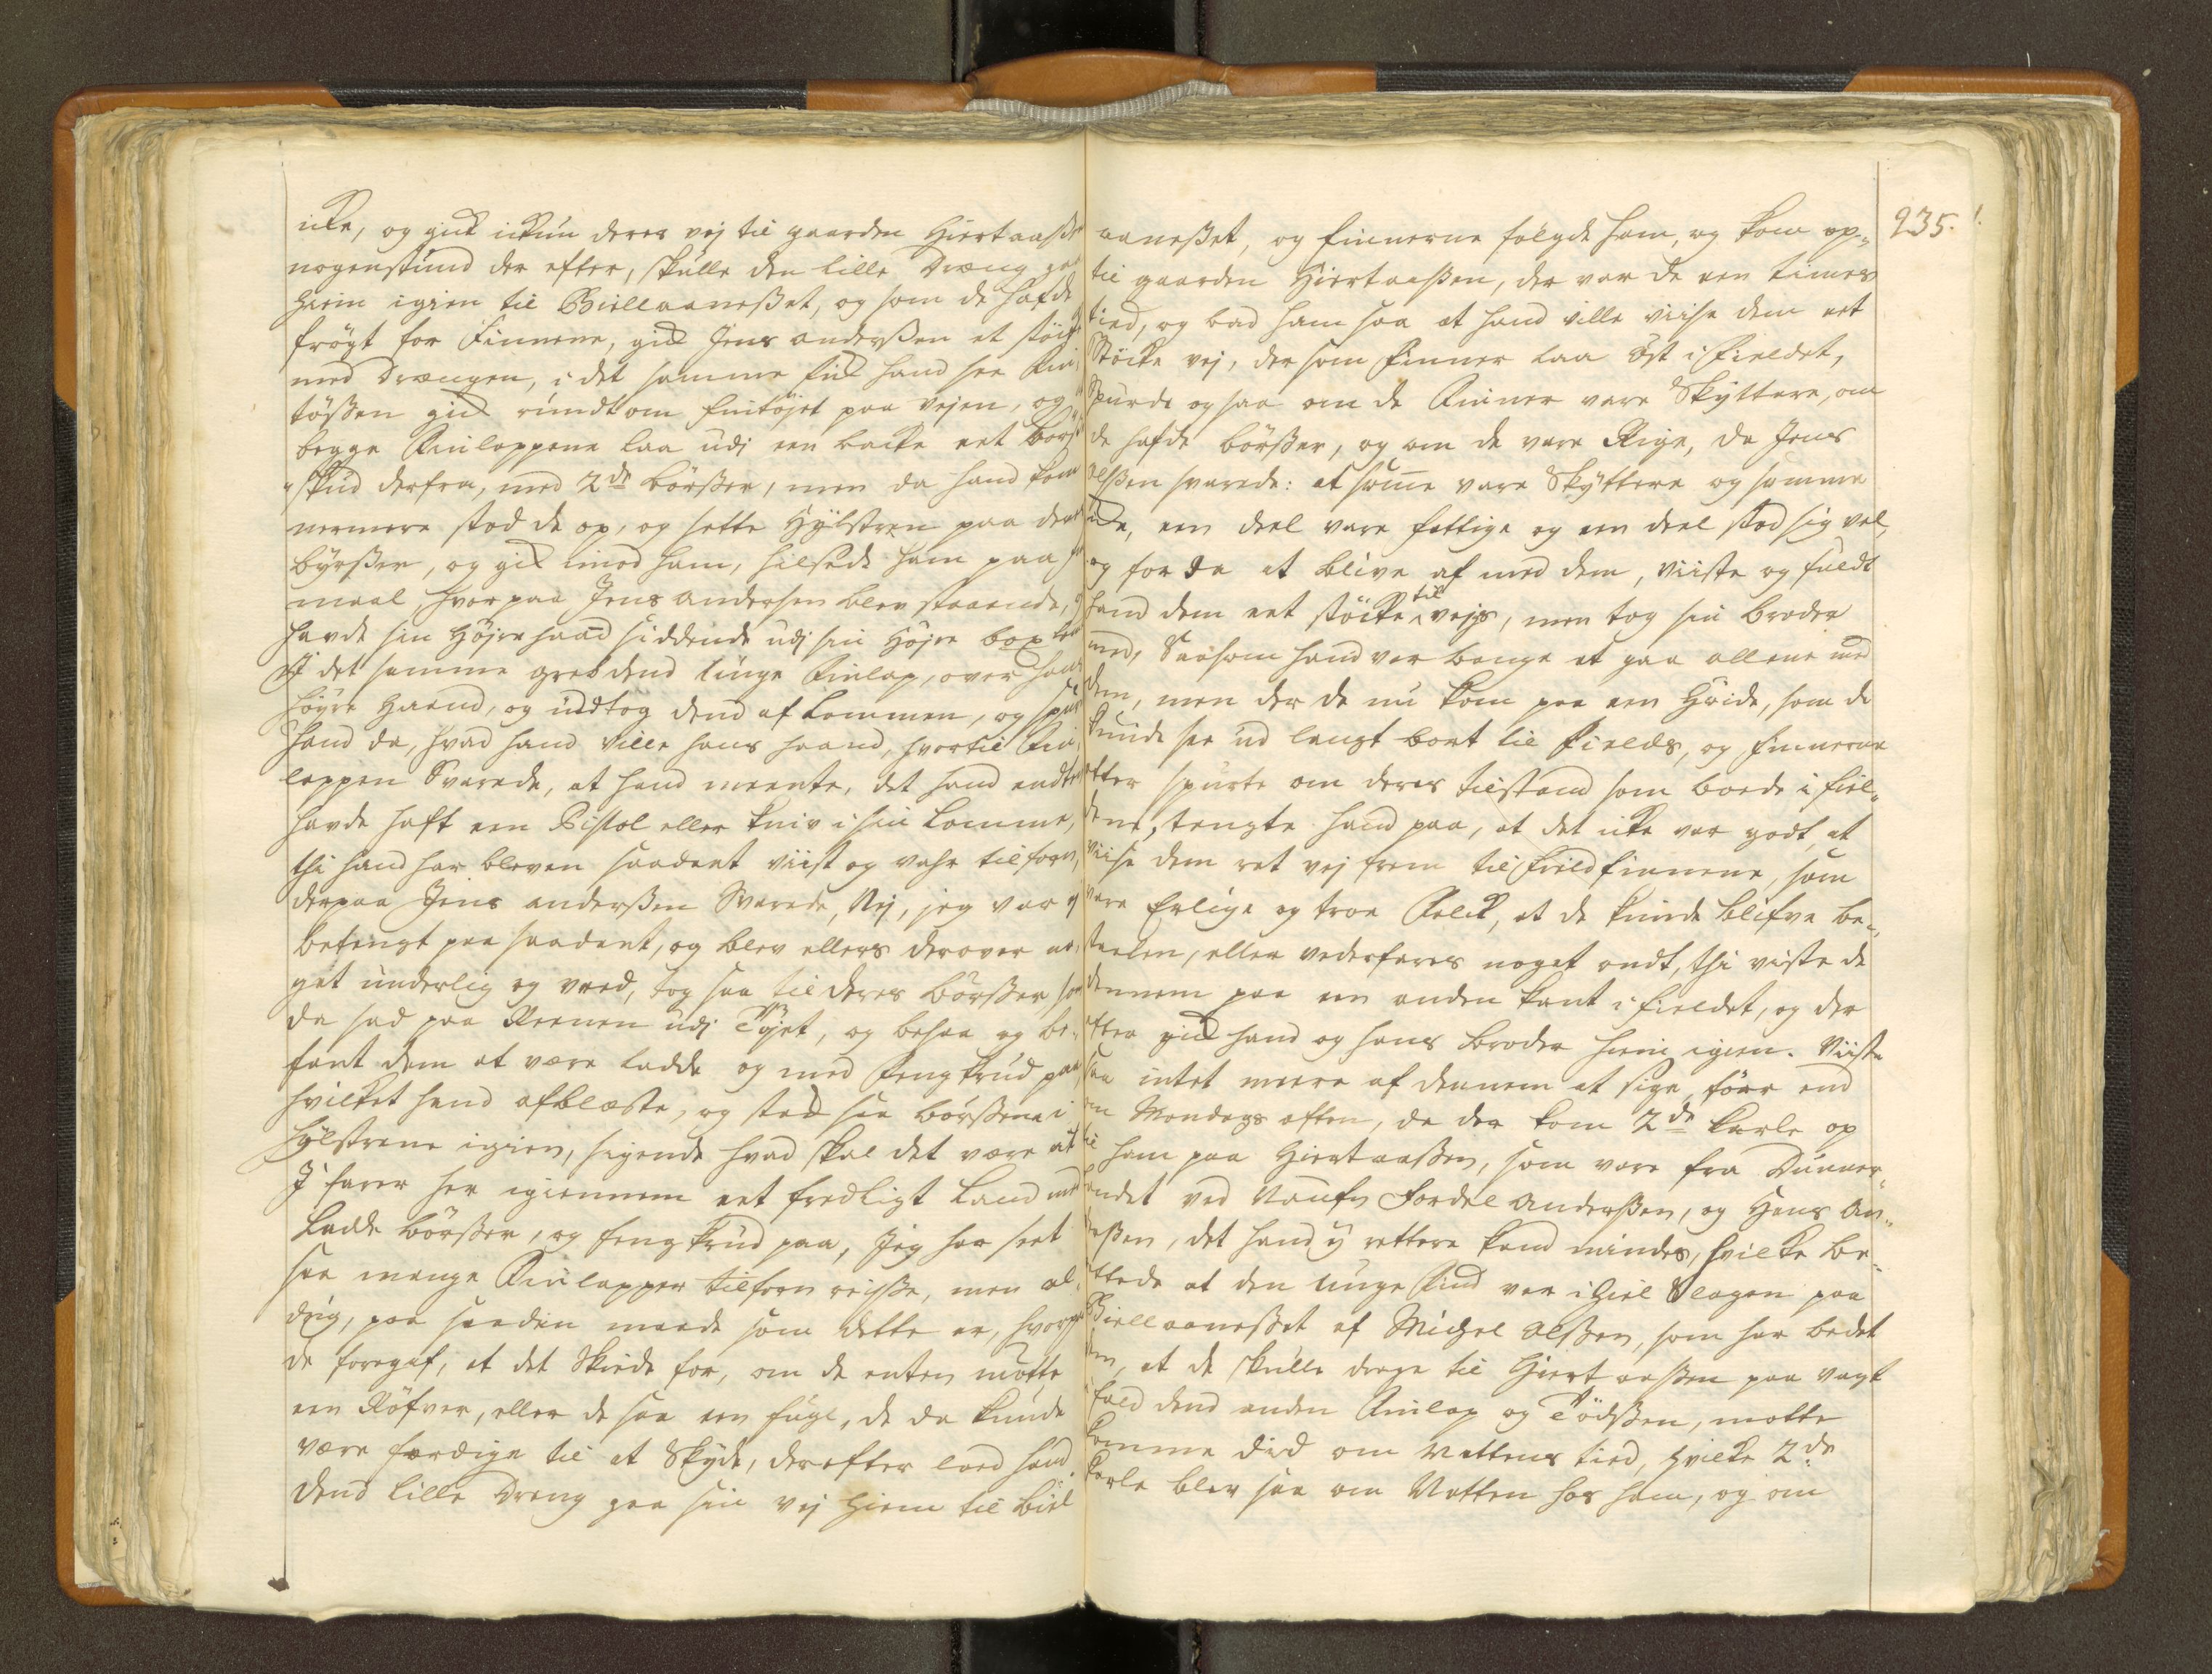 icke, og gick ickun deres vej til gaarden Hiertaaßen
nogenstund der efter, skulle den lille Dreng gaae
hiem igien til Biellaaneßet, og som de hafde
frögt for Finnene, gick Jens anderßen et stöcke
med Drængen, i det samme fick hand see Fin¬
tößen gick rundt om fintöjet paa vejen, og
begge Finlappene laa udi een backe eet börße
skud derfra, med 2de börßer, men da hand kom
nermere stod de op, og sette Hylstren paa deres
byrßer, og gick imod ham, hilsede ham paa
maal, hvor paa Jens andersen blev staaende, og
havde sin Höjre haand siddende udj sin Höjre box
I det samme greb dend unge Finlap, over hans
höyre Haand, og udtog dend af Lommen, og spurte
hand da, hvad hand ville hans haand, hvortil Fin¬
lappen Svarede, at hand meente, det hand endten
havde haft een Pistol eller kniv i sin Lomme,
thi hand har bleven saadant viist og vahr tilforn,
derpaa Jens anderßen Svarede, Nej, jeg var ej
betengt paa saadant, og blev ellers derover
get underlig og vreed, tog saa til deres börßer, som
da sad paa Reenen udj Töjet, og besaae og be¬
fant dem at være ladde og med Fengkrud paa,
hvilket hand afblæste, og stack saa börßene i
Hylstrene igien, sigende hvad skal det være at
I farer her igiennem eet fredligt Land med
Ladde börßer, og fengkrud paa, Jeg har seet
saa mange Finlapper tilforn reiße, men al¬
drig, paa saadan maade som dette er, hvorpaa
de foregaf, at det Skeede for, om de enten mötte
een Röfver, eller de saa een fugl, de da kunde
være færdige til at Skyde, derefter loed hand
dend lille Dreng gaa sin vej hiem til Biel
235.
aaneßet, og Finnerne folgde ham, og kom op¬
til gaarden Hiertaaßen, der var de een times
tied, og bad ham saa at hand ville viise dem eet
Stöcke vej, der som Finner laa öst i Fieldet,
Spurde og saa om de Finner vare Skyttere, om
de hafde börßer, og om de vare Rige, da Jens
olßen svarede: at somme vare Skyttere og somme
icke, een deel vare fattige og een deel stod sig vel,
og for da at blive af med dem, viiste og fuldt
hand dem eet stöcke til vejs, men tog sin broder
med, Saasom hand var bange at gaa allene med
dem, men der de nu kom paa een Höide, som de
kunde see ud langt bort til Fields, og Finnerne
etter spurte om deres tilstand som boede i fiel¬
dene, tengte hand paa, at det icke var godt, at
viise dem ret vej frem til Fieldfinnene, som
vare Erlige og troe Folck, at de kunde blifve be¬
staalen, eller vederfares noget ondt, thi viste de
dennem paa een anden kant i Fieldet, og der
efter gick hand og hans broder hiem igien. Viiste
saa intet meere af dennem at sige, föer end
om Mandags aften, da der kom 2de karle op
til ham paa Hiertaaßen, som vare fra Dunner¬
landet ved Naufn Fordel Anderßen, og Hans An¬
derßen, det hand ej rettere kand mindes, hvilke be¬
rettede at den unge Find var ihiel Slagen paa
Biellaaneßet af Michel olßen, som har bedet
dem, at de skulle drage til Hiertaaßen paa vagt
i fald dend anden Finlap og Tödßen, motte
komme did om Nattens tied, hvilke 2de
karle blev saa om Natten hos ham, og om